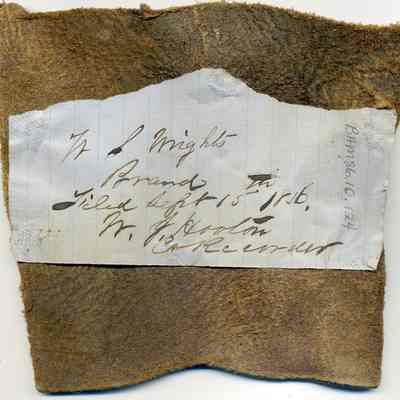 W S Wrights
Brand
Filed Sept 15th 1886.
W. J. Hooton
Co Recorder
BHM86.16.124